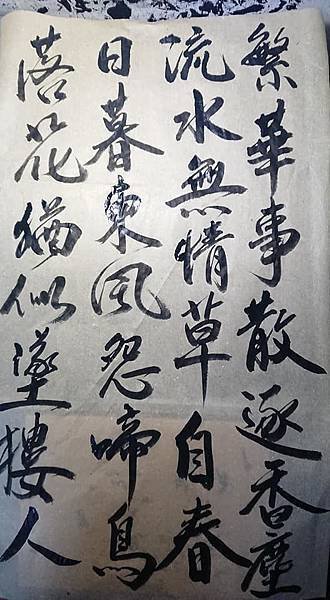 繁華事散逐香塵
流水無情草自春
日暮東風怨啼鳥
落花猶似墬樓人